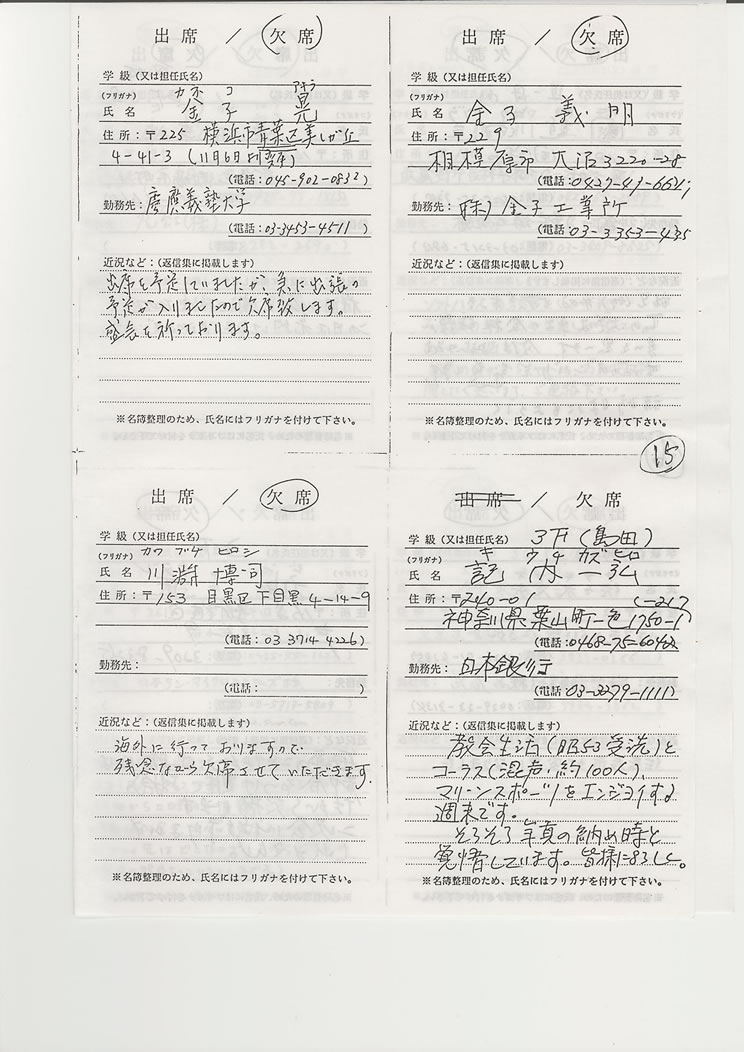 出 席 ／ 欠 席
学 級（又は担任氏名）
(フリガナ) カネ コ アキラ
氏 名 金子 晃
住 所：〒225 横浜市青葉区美しが丘
4-41-3 (11月6日
(電話：045-902-0832)
勤務先：慶應義塾大学
(電話：03-3453-4511)
近況など：（返信集に掲載します）
出席を予定していましたが、急に出張の
予定が入りましたので欠席致します。
盛会を祈っております。
※名簿整理のため、氏名にはフリガナを付けて下さい。
出 席 ／ 欠 席
学 級（又は担任氏名）
(フリガナ)
氏 名 金子 義明
住 所：〒229
相模原市 大沼3220-28
(電話：0427-
勤務先：(株)金子工業所
(電話：03-3353-
近況など：（返信集に掲載します）
※名簿整理のため、氏名にはフリガナを付けて下さい。
15
出 席 ／ 欠 席
学 級（又は担任氏名）
(フリガナ) カワ ブチ ヒロシ
氏 名 川渕 博司
住 所：〒153 目黒区下目黒4-14-9
(電話：03 3714-4226)
勤務先：
(電話： )
近況など：（返信集に掲載します）
海外に行っておりますので
残念ながら欠席させていただきます。
※名簿整理のため、氏名にはフリガナを付けて下さい。
出 席 ／ 欠 席
学 級（又は担任氏名） 3F (島田)
(フリガナ) キ ウチ カズヒロ
氏 名 記内 一弘
住 所：〒240-01
神奈川県葉山町一色1750-1
(-217
(電話：0468-75-
勤務先：日本銀行
(電話：03-3279-1111)
近況など：（返信集に掲載します）
教会生活(昭53受洗)と
コーラス(混声・約100人)、
マリーンスポーツをエンジョイする
週末です。
そろそろ年貢の納め時と
覚悟しています。皆様に
※名簿整理のため、氏名にはフリガナを付けて下さい。